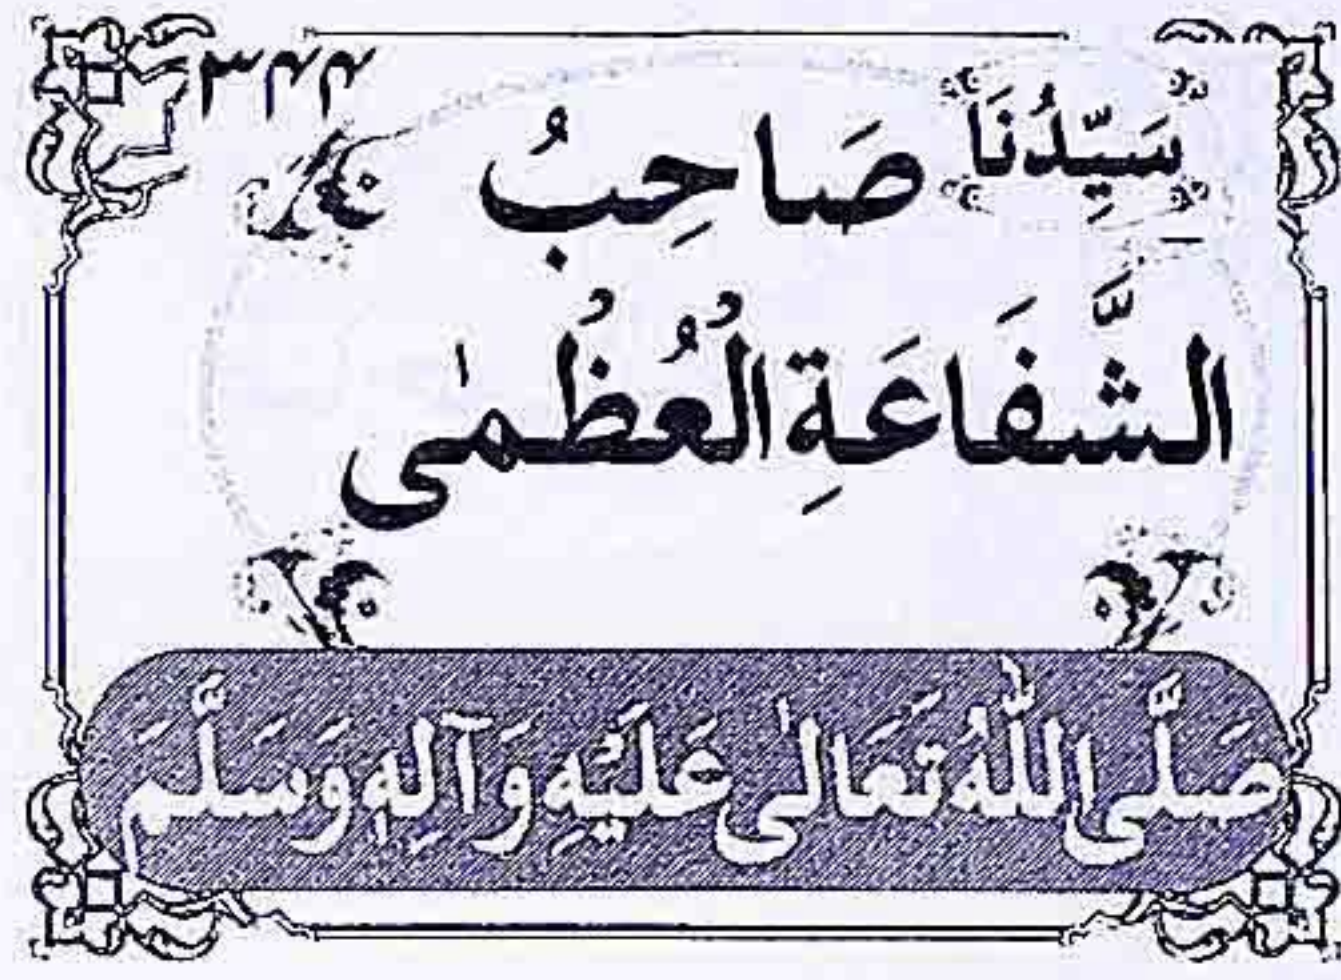 ۳۴۴
سَيِّدُنَا صَاحِبُ
الشَّفَاعَةِ الْعُظْمٰى
صَلَّى اللّٰهُ تَعَالٰى عَلَيْهِ وَآلِهٖ وَسَلَّمَ